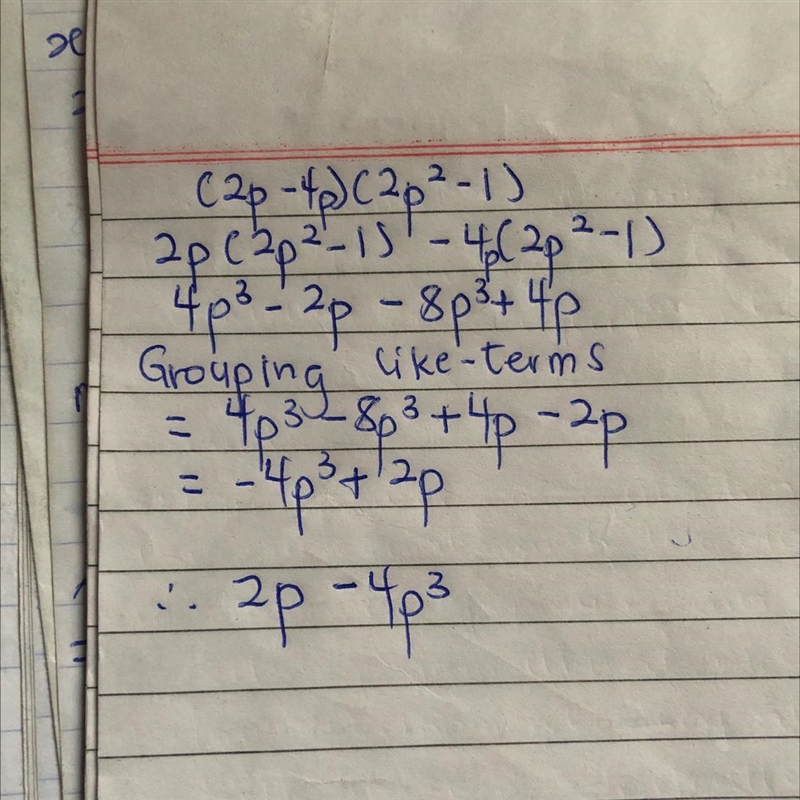 (2p - 4p)(2p² - 1)
2p(2p² - 1) - 4p(2p² - 1)
4p³ - 2p - 8p³ + 4p
Grouping like-terms
= 4p³ - 8p³ + 4p - 2p
= -4p³ + 2p
∴ 2p - 4p³